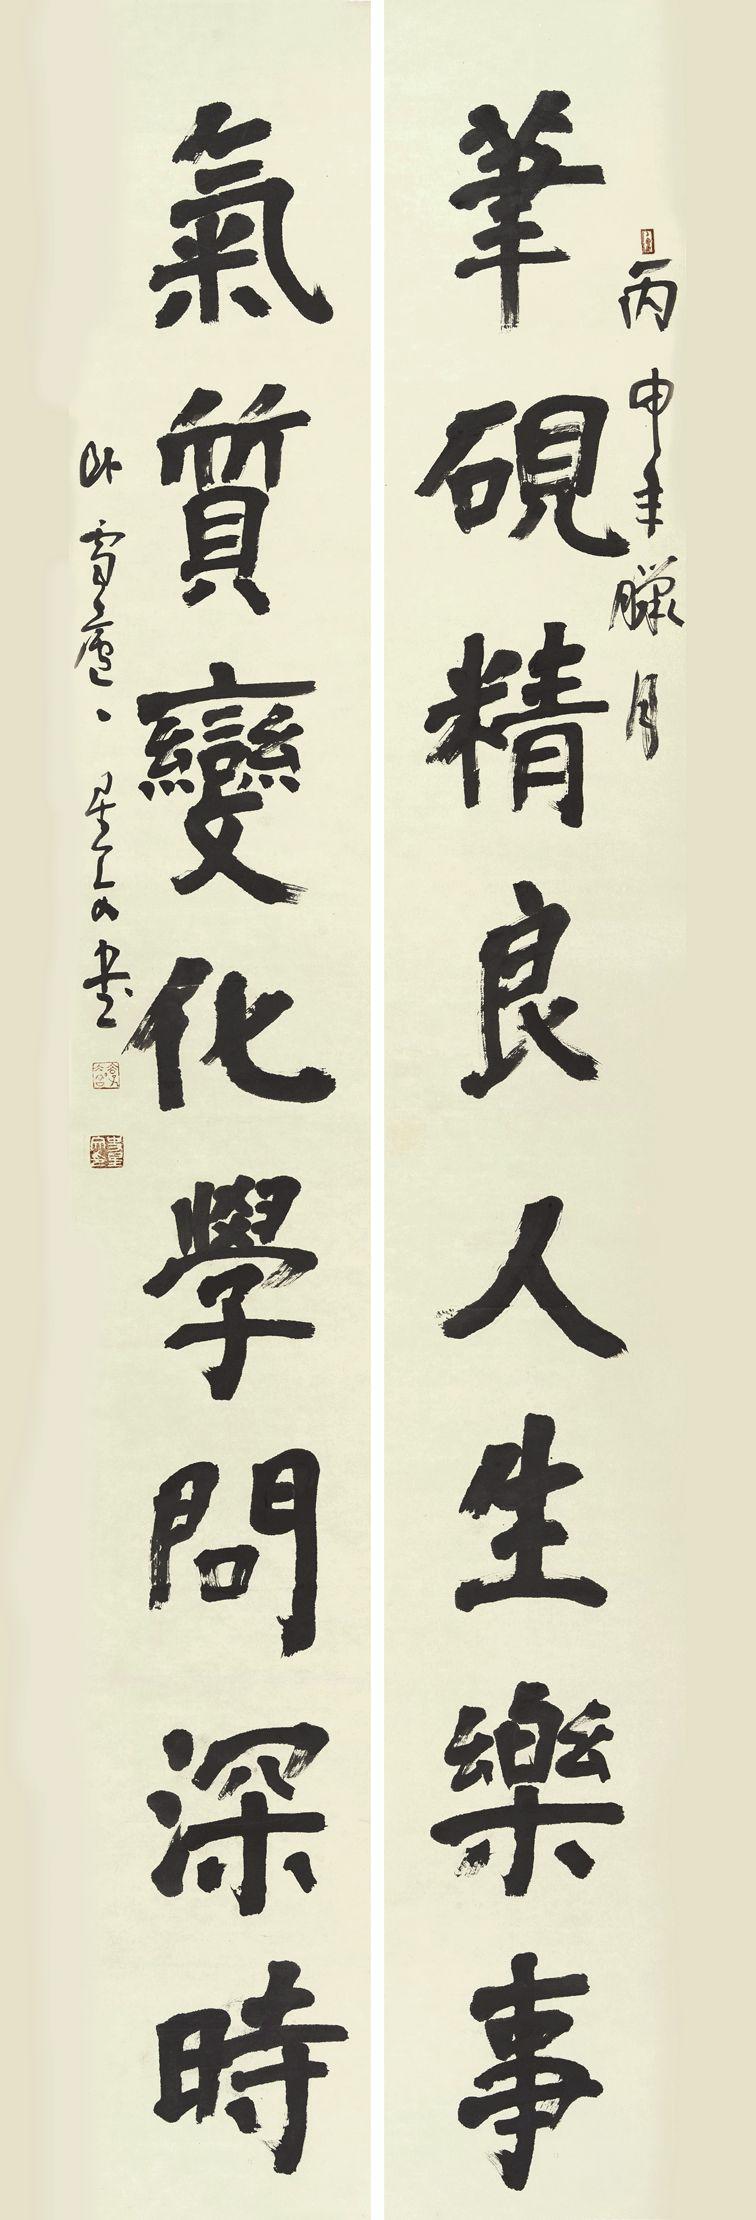 丙申年臘月
筆硯精良人生樂事
氣質變化學問深時
卧雪廬
書